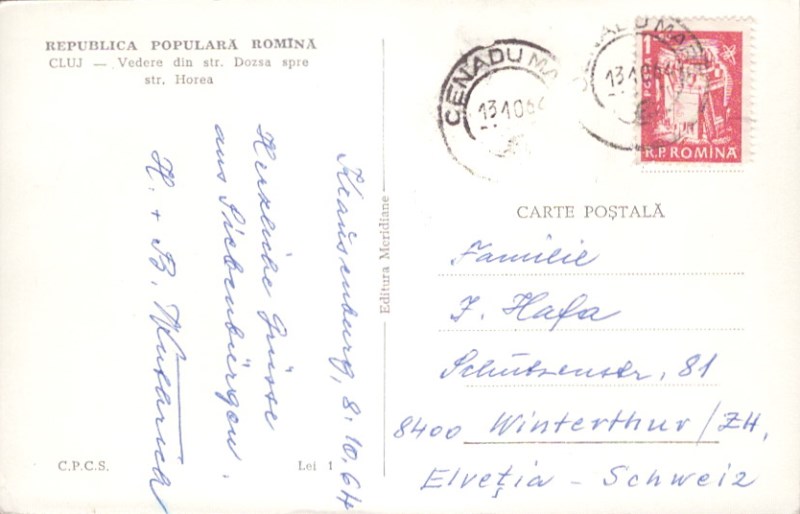 REPUBLICA POPULARĂ ROMÎNĂ
CLUJ — Vedere din str. Dozsa spre
str. Horea
Klausenburg, 8.10.64
Herzliche Grüsse
aus Siebenbürgen.
H. + B.
C.P.C.S.
Lei 1
Editura Meridiane
CENADU MA
13 10 64
CENADU MA
13 10 64
1
POȘTA
R.P. ROMÎNĂ
CARTE POȘTALĂ
Familie
J. Hafa
Schützenstr, 81
8400 Winterthur/ZH,
Elveția - Schweiz